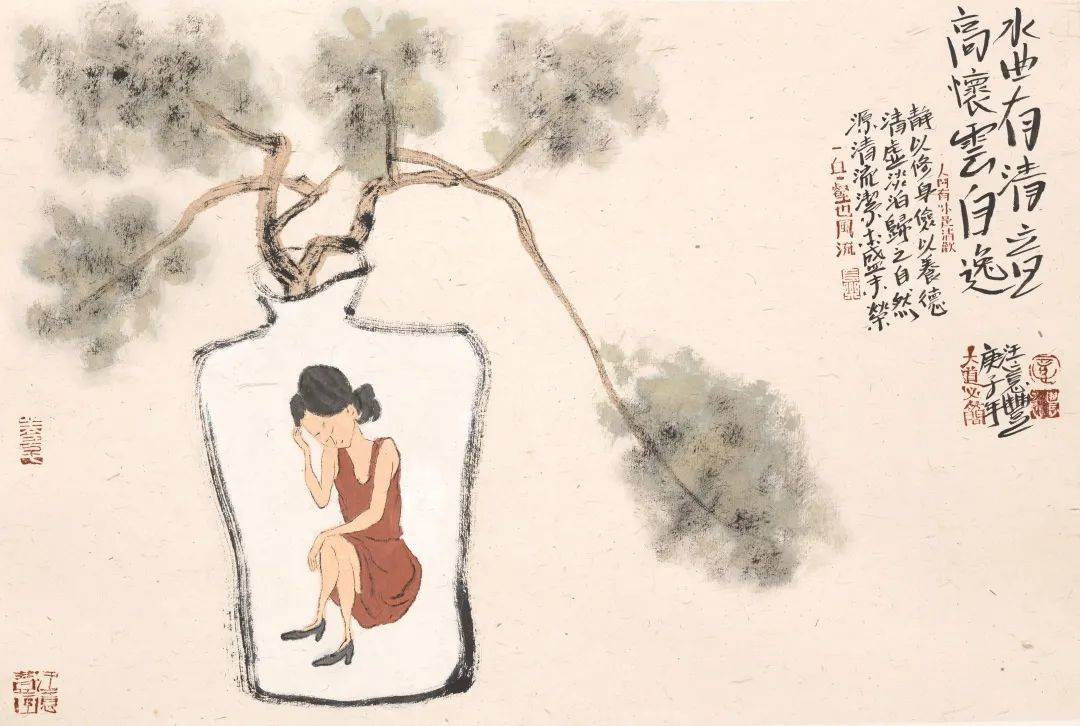 水曲有清音
高懷雲自逸
人間有味是清歡
靜以修身儉以養德
清虛淡泊歸之自然
源清流潔本盛末榮
一丘一壑也風流
汪意豐
庚子年
大道必簡